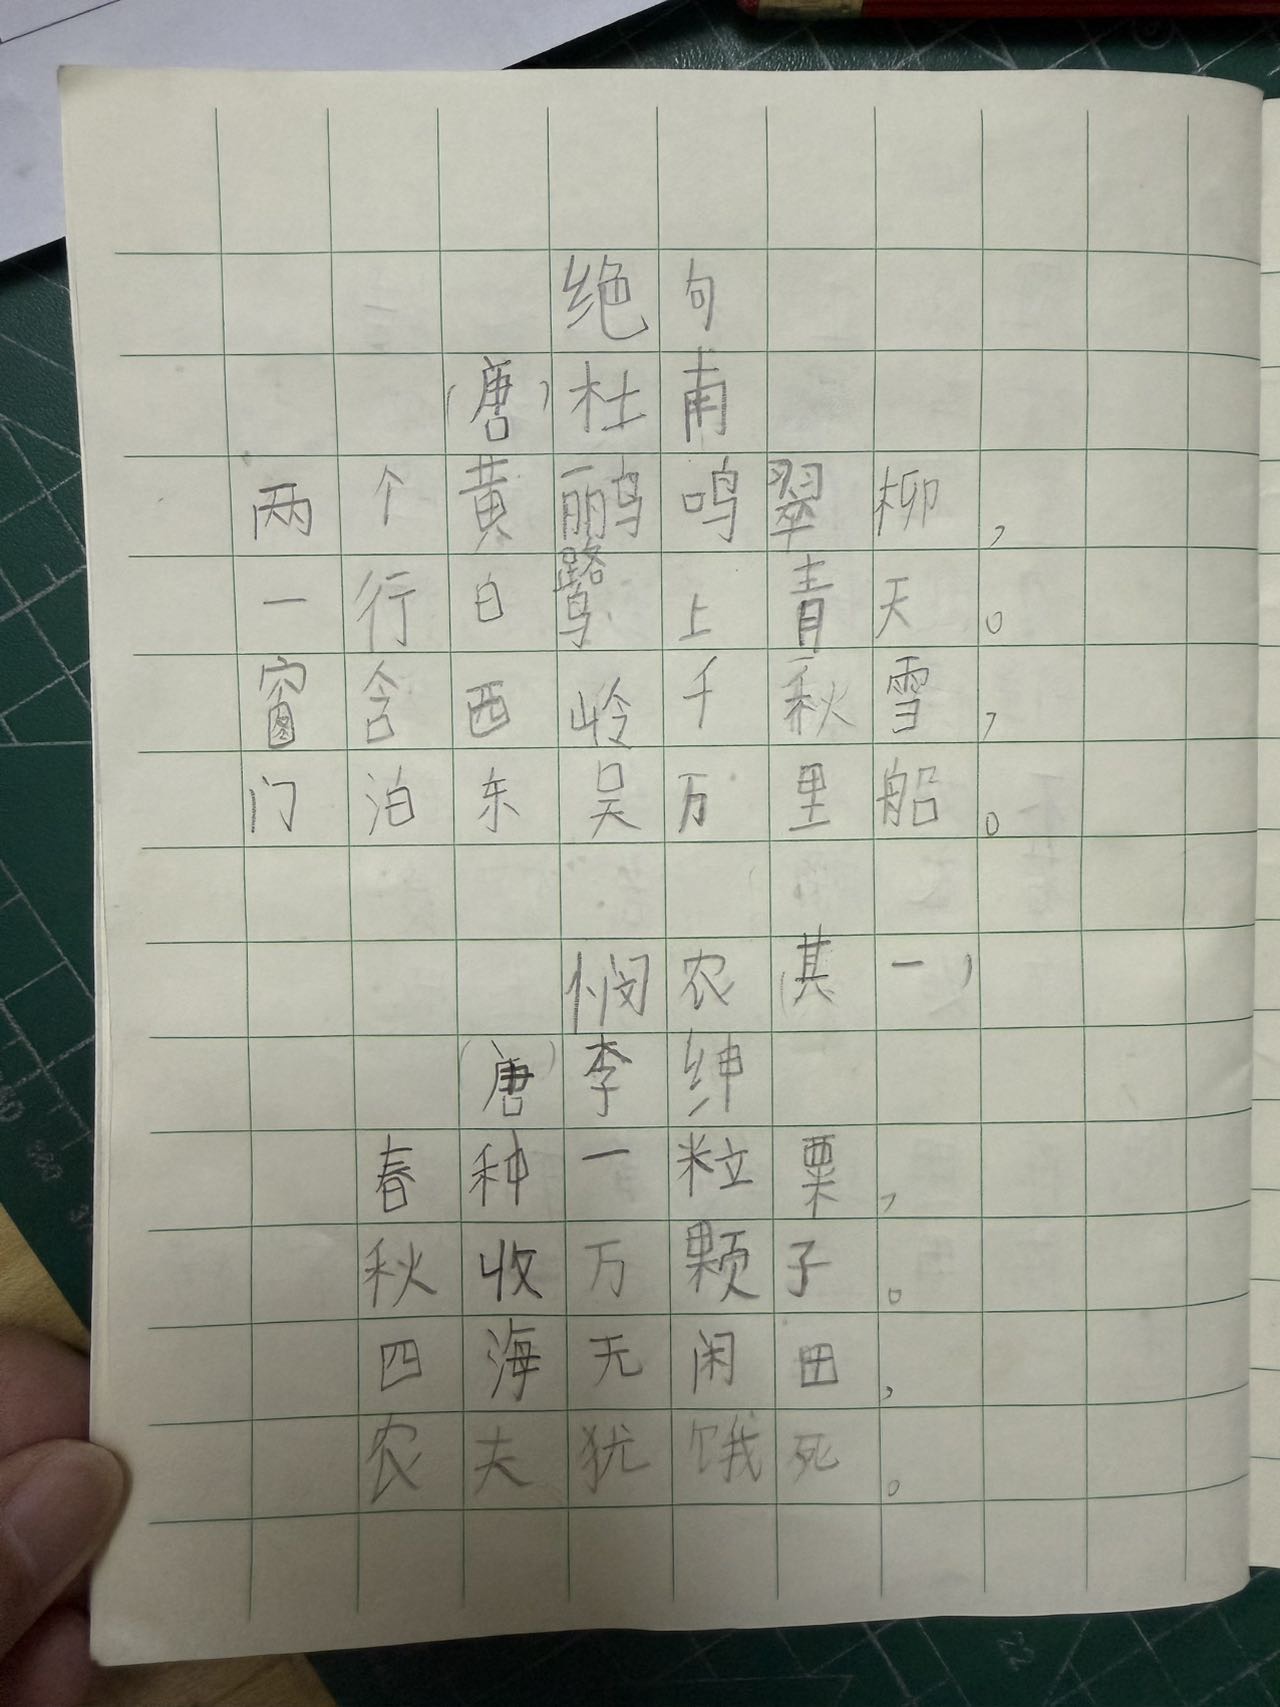 绝句
(唐)杜甫
两个黄鹂鸣翠柳,
一行白鹭上青天。
窗含西岭千秋雪,
门泊东吴万里船。
悯农(其一)
(唐)李绅
春种一粒粟,
秋收万颗子。
四海无闲田,
农夫犹饿死。